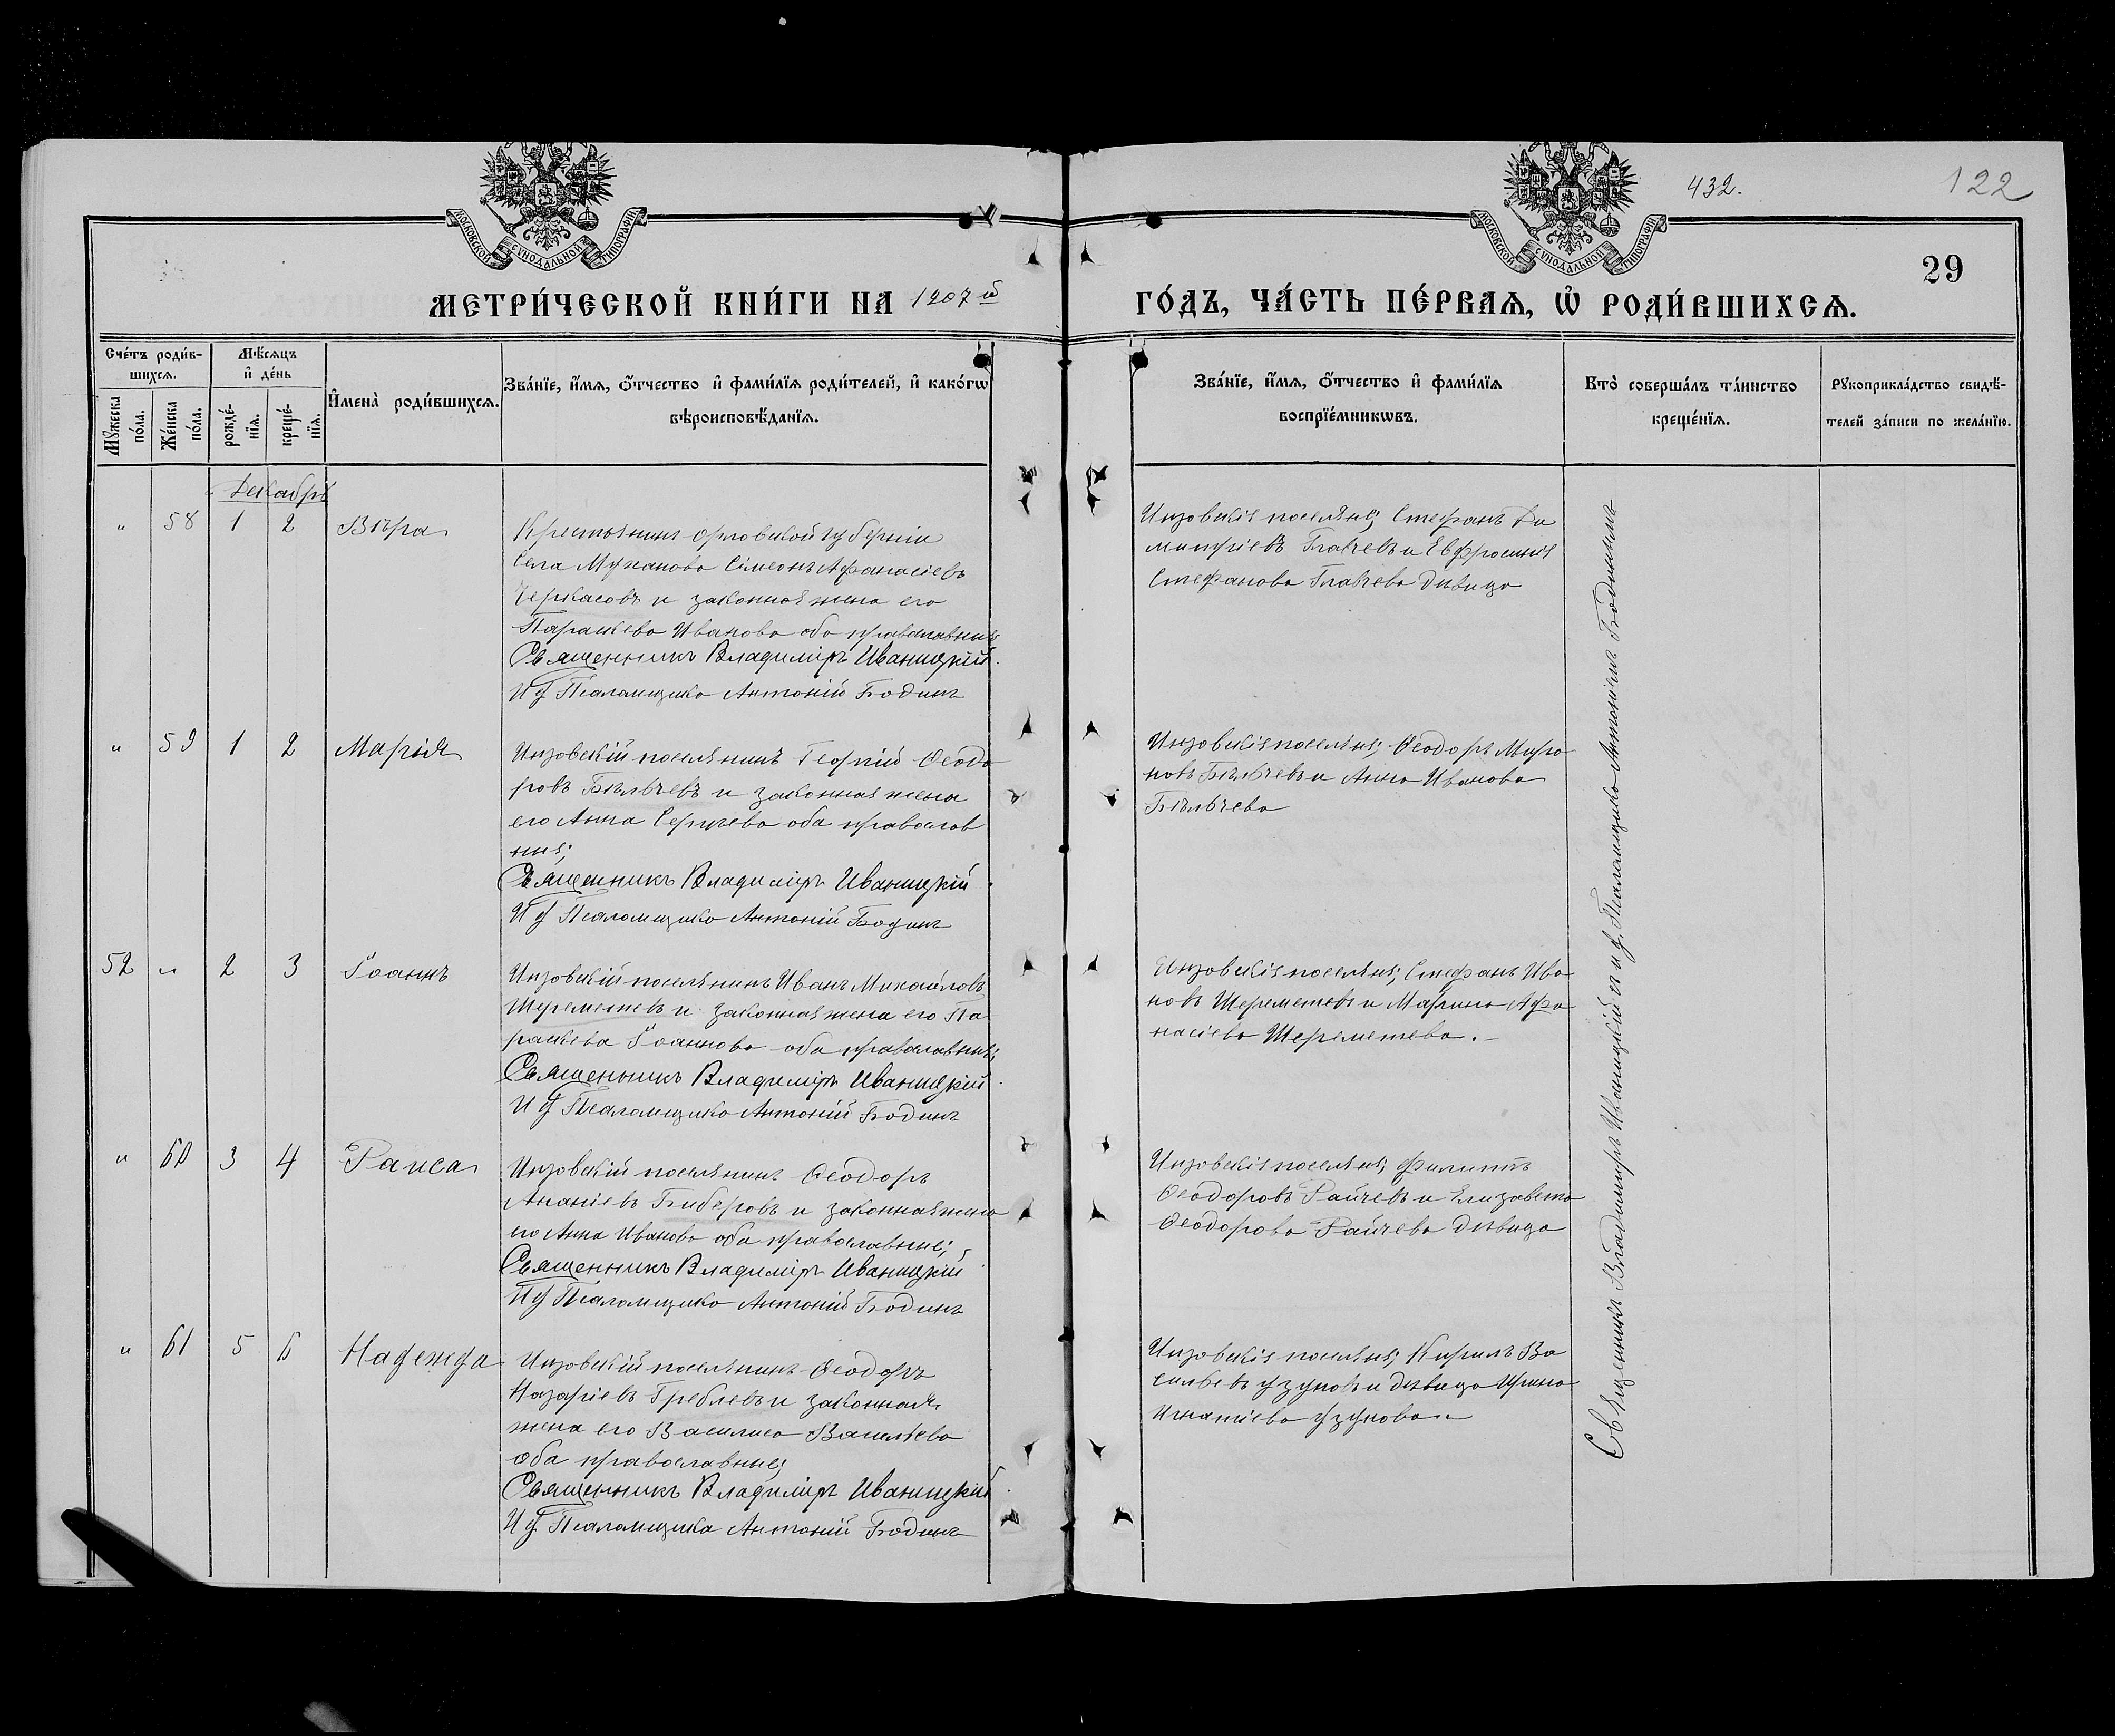 432.
122
29
МОСКОВСКОЙ СУНОДАЛЬНОЙ ТИПОГРАФІИ
МОСКОВСКОЙ СУНОДАЛЬНОЙ ТИПОГРАФІИ
МЕТРИ́ЧЕСКОЙ КНИ́ГИ НА 1907 й
ГО́ДЪ, ЧА́СТЬ ПЕ́РВАѦ, Ѡ҆ РОДИ́ВШИХСѦ.
Сче́тъ роди́в-
шихсѧ.
Мꙋжеска по́ла.
Же́нска по́ла.
Мѣ́сѧцъ
и҆ де́нь
рожде́-
нїѧ.
креще́-
нїѧ.
И҆мена̀ роди́вшихсѧ.
Зва́нїе, и҆́мѧ, ѻ҆́тчество и҆ фами́лїѧ роди́телей, и҆ како́гѡ
вѣроисповѣ́данїѧ.
Зва́нїе, и҆́мѧ, ѻ҆́тчество и҆ фами́лїѧ
воспрїе́мникѡвъ.
Кто̀ соверша́лъ та́инство
креще́нїѧ.
Рꙋкоприкла́дство свидѣ́-
телей за́писи по жела́нїю.
Декабрь
" 58 1 2 Вѣра
Крестьянинъ Орловской губерніи
села Муханова Сімеонъ Афанасіевъ
Черкасовъ и законная жена его
Параскева Иванова оба православные
Священникъ Владиміръ Иваницкій.
И д Псаломщика Антоній Бодинъ
Инзовскіе поселяне; Стефанъ Ди
митріевъ Главчевъ и Евфросинія
Стефанова Главчева дѣвица
" 59 1 2 Марія
Инзовскій поселянинъ Георгій Ѳеодо
ровъ Бѣльчевъ и законная жена
его Анна Сергѣева оба православ
ные;
Священникъ Владиміръ Иваницкій.
И д Псаломщика Антоній Бодинъ
Инзовскіе поселяне; Ѳеодоръ Миро
новъ Бѣльчевъ и Анна Иванова
Бѣльчева
52 " 2 3 Іоаннъ
Инзовскій поселянинъ Иванъ Михайловъ
Шереметевъ и законная жена его Па
раскева Іоаннова оба православные;
Священникъ Владиміръ Иваницкій.
И д Псаломщика Антоній Бодинъ
Инзовскіе поселяне; Стефанъ Ива
новъ Шереметевъ и Марина Афа
насіева Шереметева.
" 60 3 4 Раиса
Инзовскій поселянинъ Ѳеодоръ
Ананіевъ Биберовъ и законная жена
его Анна Иванова оба православные;
Священникъ Владиміръ Иваницкій
И д Псаломщика Антоній Бодинъ
Инзовскіе поселяне; Филиппъ
Ѳеодоровъ Райчевъ и Елизавета
Ѳеодорова Райчева дѣвица
" 61 5 6 Надежда
Инзовскій поселянинъ Ѳеодоръ
Назаріевъ Греблевъ и законная
жена его Василиса Васильева
оба православные;
Священникъ Владиміръ Иваницкій.
И д. Псаломщика Антоній Бодинъ
Инзовскіе поселяне; Кирилъ Ва
сильевъ Узуновъ и дѣвица Ирина
Игнатіева Узунова
Священникъ Владиміръ Иваницкій съ и д. Псаломщика Антоніемъ Бодинымъ